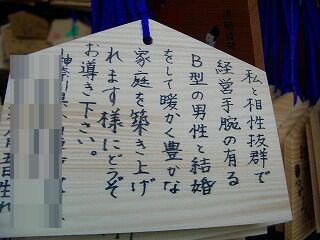 私と相性抜群で
経営手腕の有る
B型の男性と結婚
をして暖かく豊かな
家庭を築き上げ
れます様にどうぞ
お導き下さい。
五日生れ